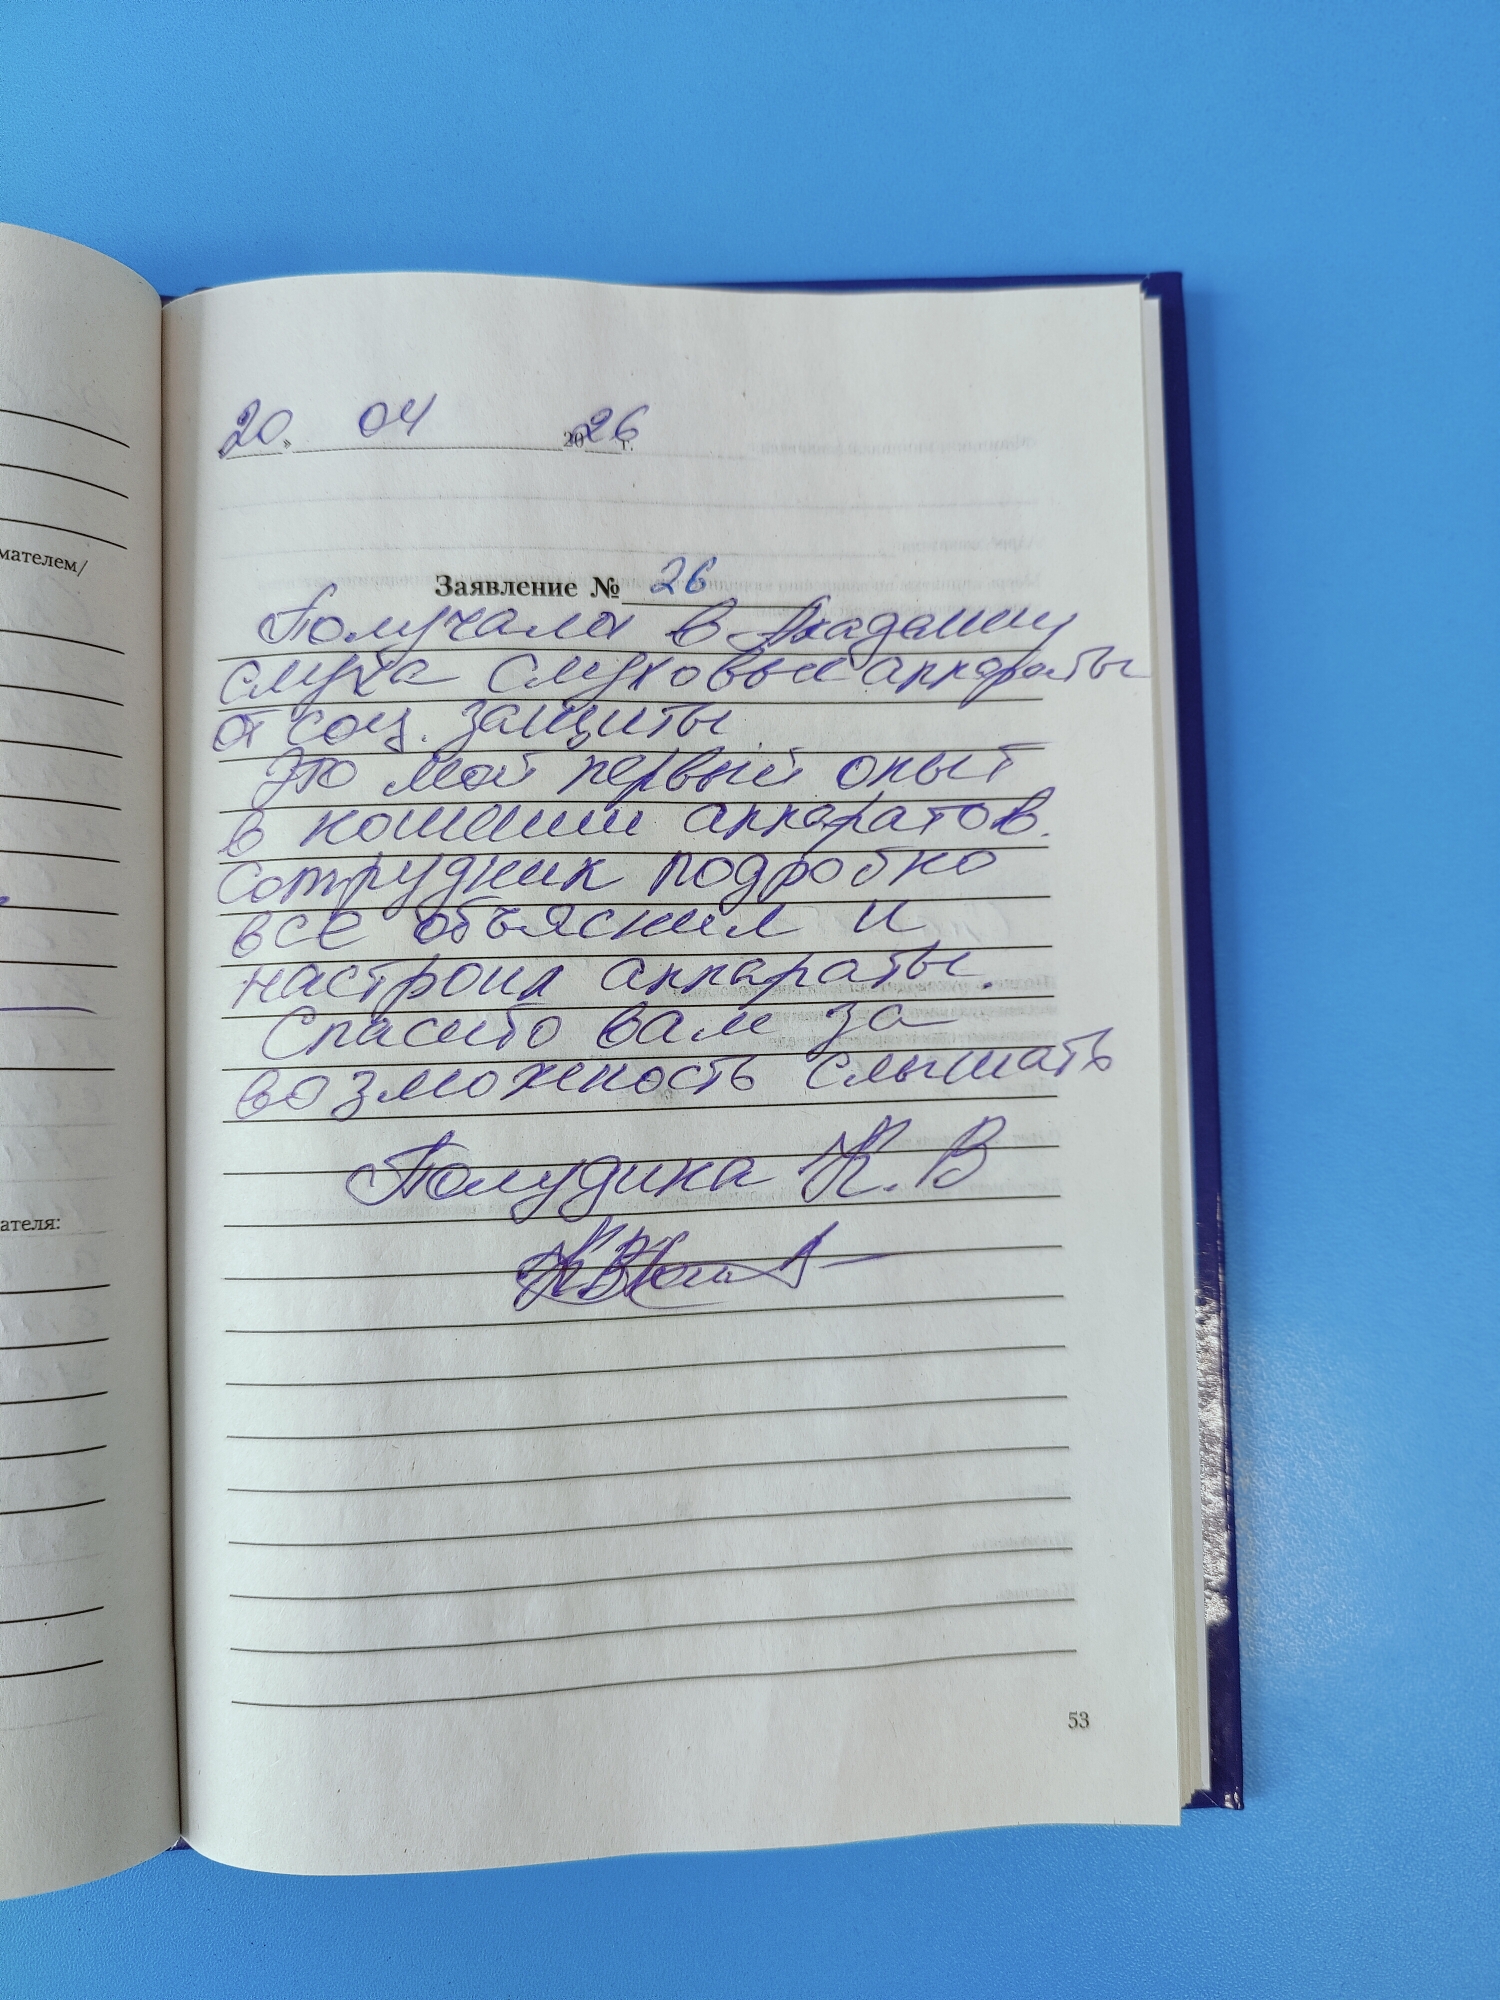 мателем/
ателя:
20 » 04 2026 г.
Заявление № 26
Получала в Академии
слуха слуховые аппараты
от соц. защиты
Это мой первый опыт
в ношении аппаратов.
Сотрудник подробно
все объяснил и
настроил аппараты.
Спасибо вам за
возможность слышать
Полудина К. В
53